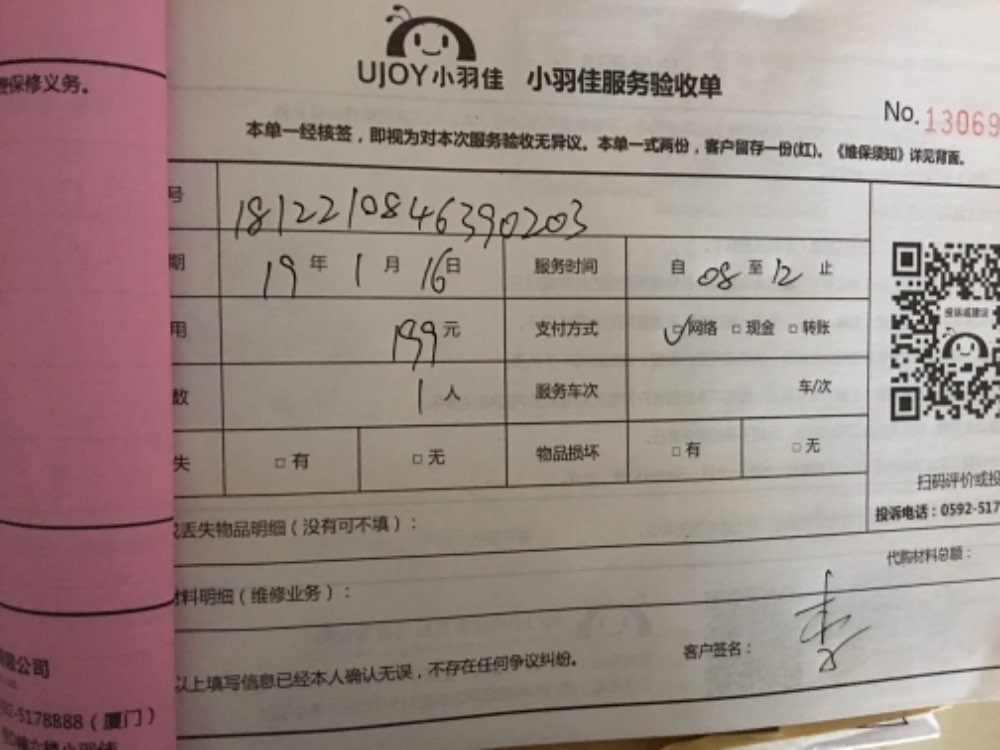 UJOY小羽佳 小羽佳服务验收单
No. 13069
本单一经核签，即视为对本次服务验收无异议。本单一式两份，客户留存一份(红)。《维保须知》详见背面。
号 181221084639020​3
期 19 年 1 月 16 日 服务时间 自 08 至 12 止
用 199 元 支付方式 ☑网络 □现金 □转账
数 1 人 服务车次 车/次
失 □有 □无 物品损坏 □有 □无
投诉或建议
扫码评价或投
投诉电话：0592-517
丢失物品明细（没有可不填）：
代购材料总额：
材料明细（维修业务）：
以上填写信息已经本人确认无误，不存在任何争议纠纷。
客户签名：
保修义务。
限公司
92-5178888（厦门）
楼小羽佳